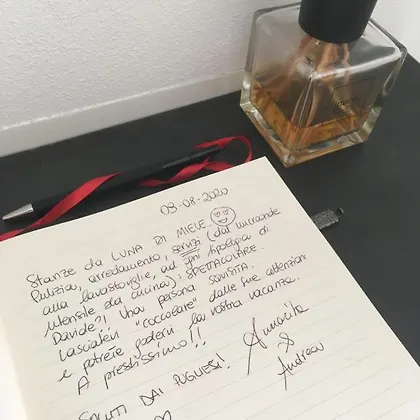 09-08-2020
Stanze da LUNA DI MIELE
Pulizia, arredamento, servizi (dal microonde
alla lavastoviglie, ad ogni tipologia di
utensile da cucina): SPETTACOLARE.
Davide?! Una persona squisita.
Lasciatevi "coccolare" dalle sue attenzioni
e potrete godervi la vostra vacanza.
A prestissimo!!!
SALUTI DAI PUGLIESI!
Annarita
&
Andrea